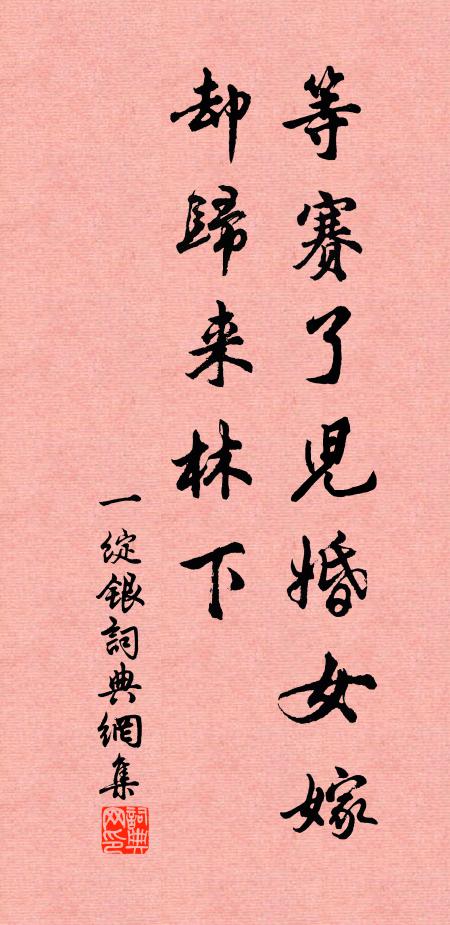 等賽了兒婚女嫁
却歸来林下
一綻銀詞典網集
詞典网印